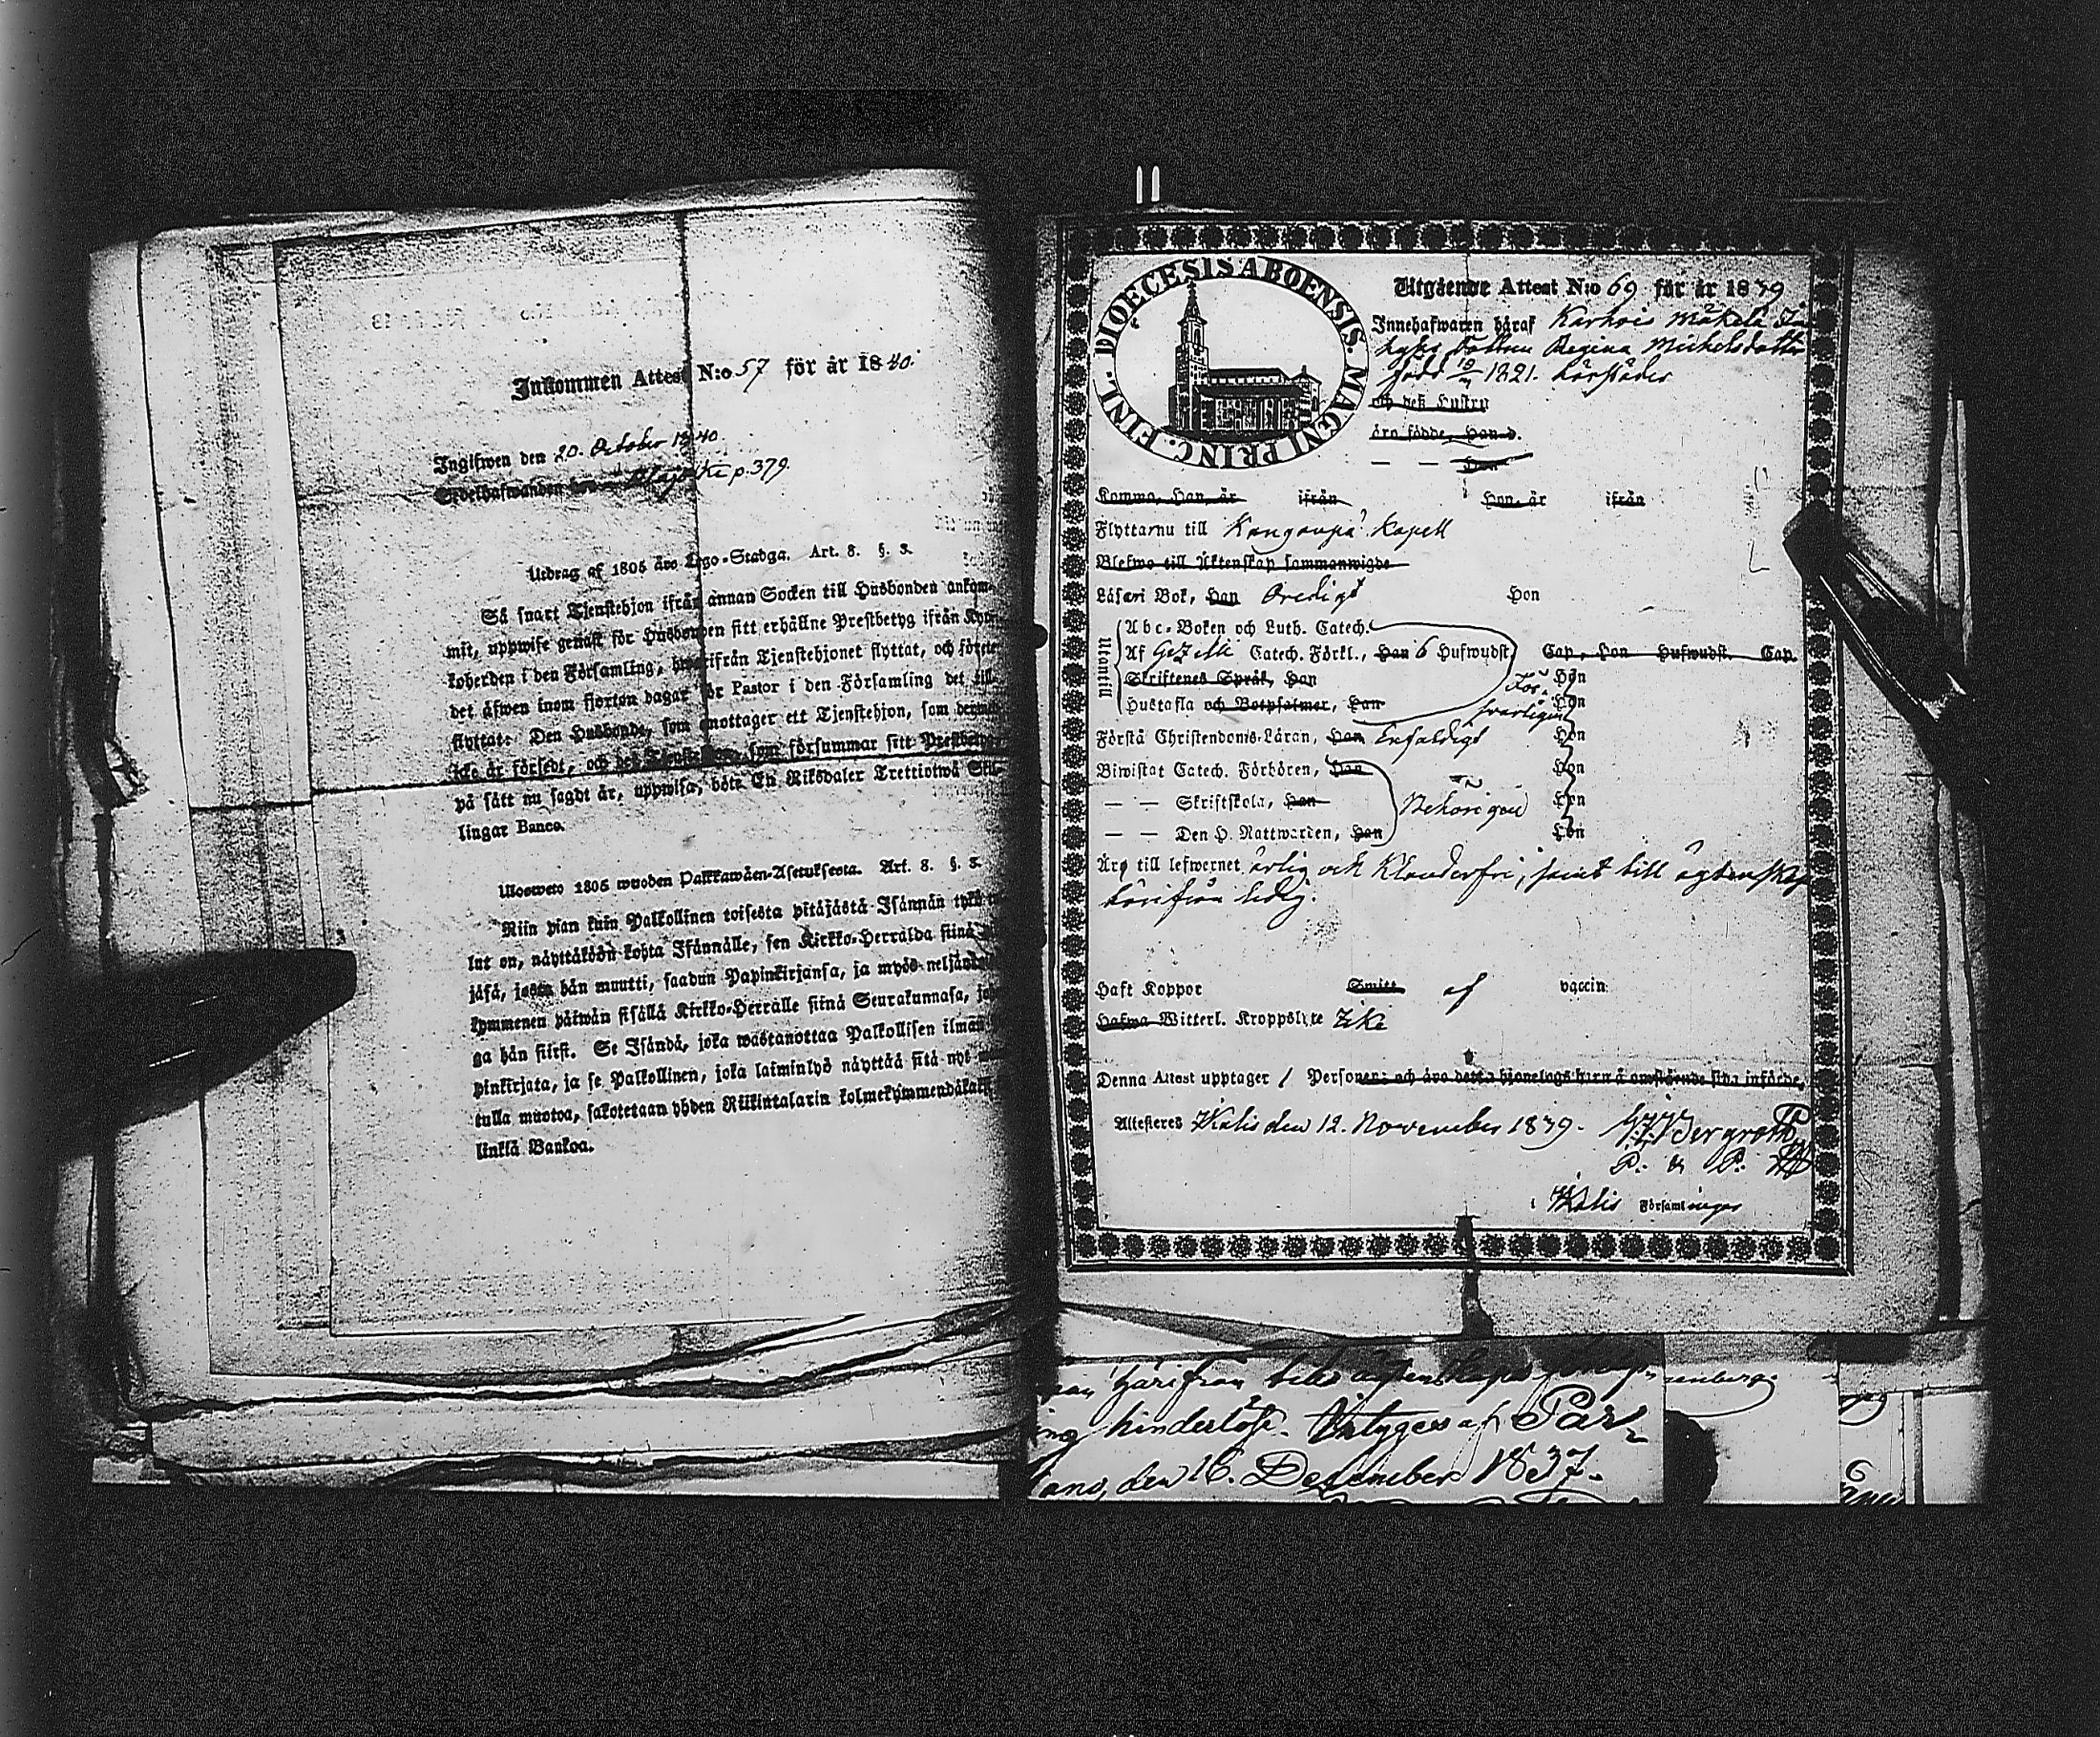 Inkommen Attest N:o 57 för år 1840.
Ingifwen den 20. October 1840.
p. 379.
Utdrag af 1805 års Lego-Stadga. Art. 8. §. 3.
Så snart Tjenstehjon ifrån annan Socken till Husbonden ankom-
mit, uppwise genast för Husbonden sitt erhållne Prestbetyg ifrån Kyr-
koherden i den Församling, hwarifrån Tjenstehjonet flyttat, och förete
det äfwen inom fjorton dagar för Pastor i den Församling det till-
flyttat. Den Husbonde, som emottager ett Tjenstehjon, som dermed
icke är försedt, och det som försummar sitt Prestbetyg
på sätt nu sagdt är, uppwisa, böte En Riksdaler Trettiotwå Skil-
lingar Banco.
Ulosweto 1805 wuoden Palkkawäen-Asetuksesta. Art. 8. §. 3.
Niin pian kuin Palkollinen toisesta pitäjästä Isännän tykö
lut on, näyttäköön kohta Isännälle, sen Kirkko-Herralda siinä
jäsä, josta hän muutti, saadun Papinkirjansa, ja myös neljän
kymmenen päiwän sisällä Kirkko-Herralle siinä Seurakunnasa,
ga hän siirst. Se Isändä, joka wastanottaa Palkollisen ilman
pinkirjata, ja se Palkollinen, joka laiminlyö näyttää sitä nyt
tulla muotoa, sakotetaan yhden Riikintalarin kolmekymmendäkaksi
linkiä Bankoa.
DIOECESIS ABOENSIS. MAGNI PRINC. FINL.
Utgående Attest N:o 69 för år 1839
Innehafwaren häraf Karhois Mäkelä In
hyses Dottren Regina Michelsdotter
född 10/11 1821. härstädes
och dess Hustru
äro födde, Han d.
— — Hon
Komma, Han, år ifrån Hon, år ifrån
Flyttar nu till Kanganpä Kapell
Blefwo till Äktenskap sammanwigde
Läser i Bok, Han Oredigt Hon
Utantill
Abc-Boken och Luth. Catech.
Af Gezelii Catech. Förkl., Han 6 Hufwudst. Cap, Hon Hufwudst. Cap.
Skriftenes Språk, Han Hon
Hustafla och Botpsalmer, Han Hon
Förstå Christendoms-Läran, Han Enfaldigt Hon
Biwistat Catech. Förhören, Han Hon
— — Skriftskola, Han Behörigen Hon
— — Den H. Nattwarden, Han Hon
Äro till lefwernet ärlig och Klanderfri, samt till ägtenskap
härifrån ledig.
Haft Koppor Smitt af vaccin
Hafwa Witterl. Kroppslyte Icke
Denna Attest upptager 1 Personer och äro detta hjonelags barn å omstående sida införde.
Attesteres Ikalis den 12. November 1839. Bergroth
P. & P.
i Ikalis Församlingar
härifrån till ägtenskaps
ing hinderlös. Betygas af Par-
ano, den 16. December 1837.